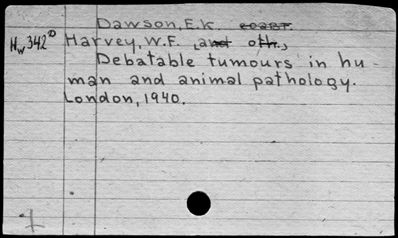 Dawson, E.K.
Hw 342D Harvey, W.F. , and oth.,
Debatable tumours in hu-
man and animal pathology.
London, 1940.